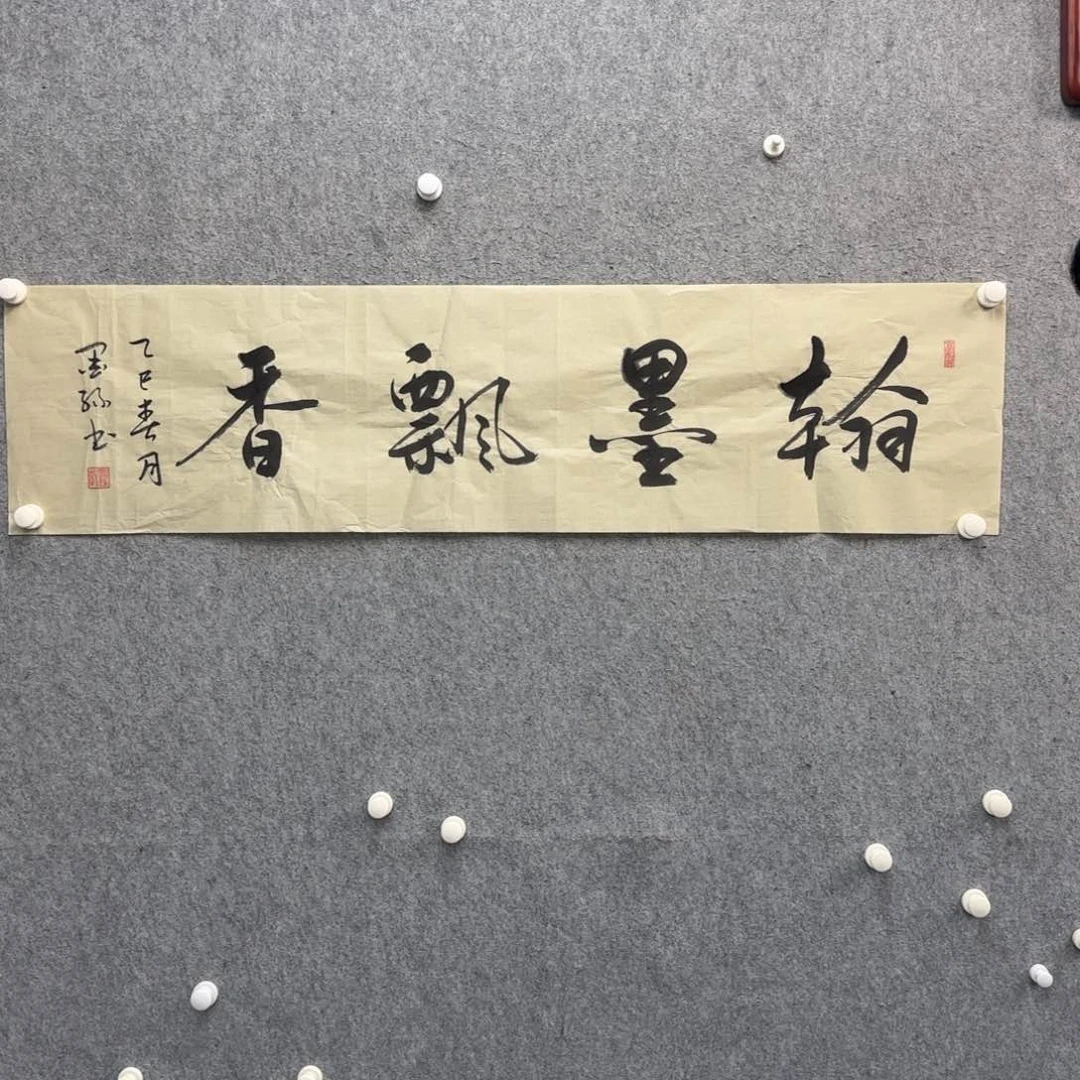 翰墨飘香
乙巳春月
墨缘书